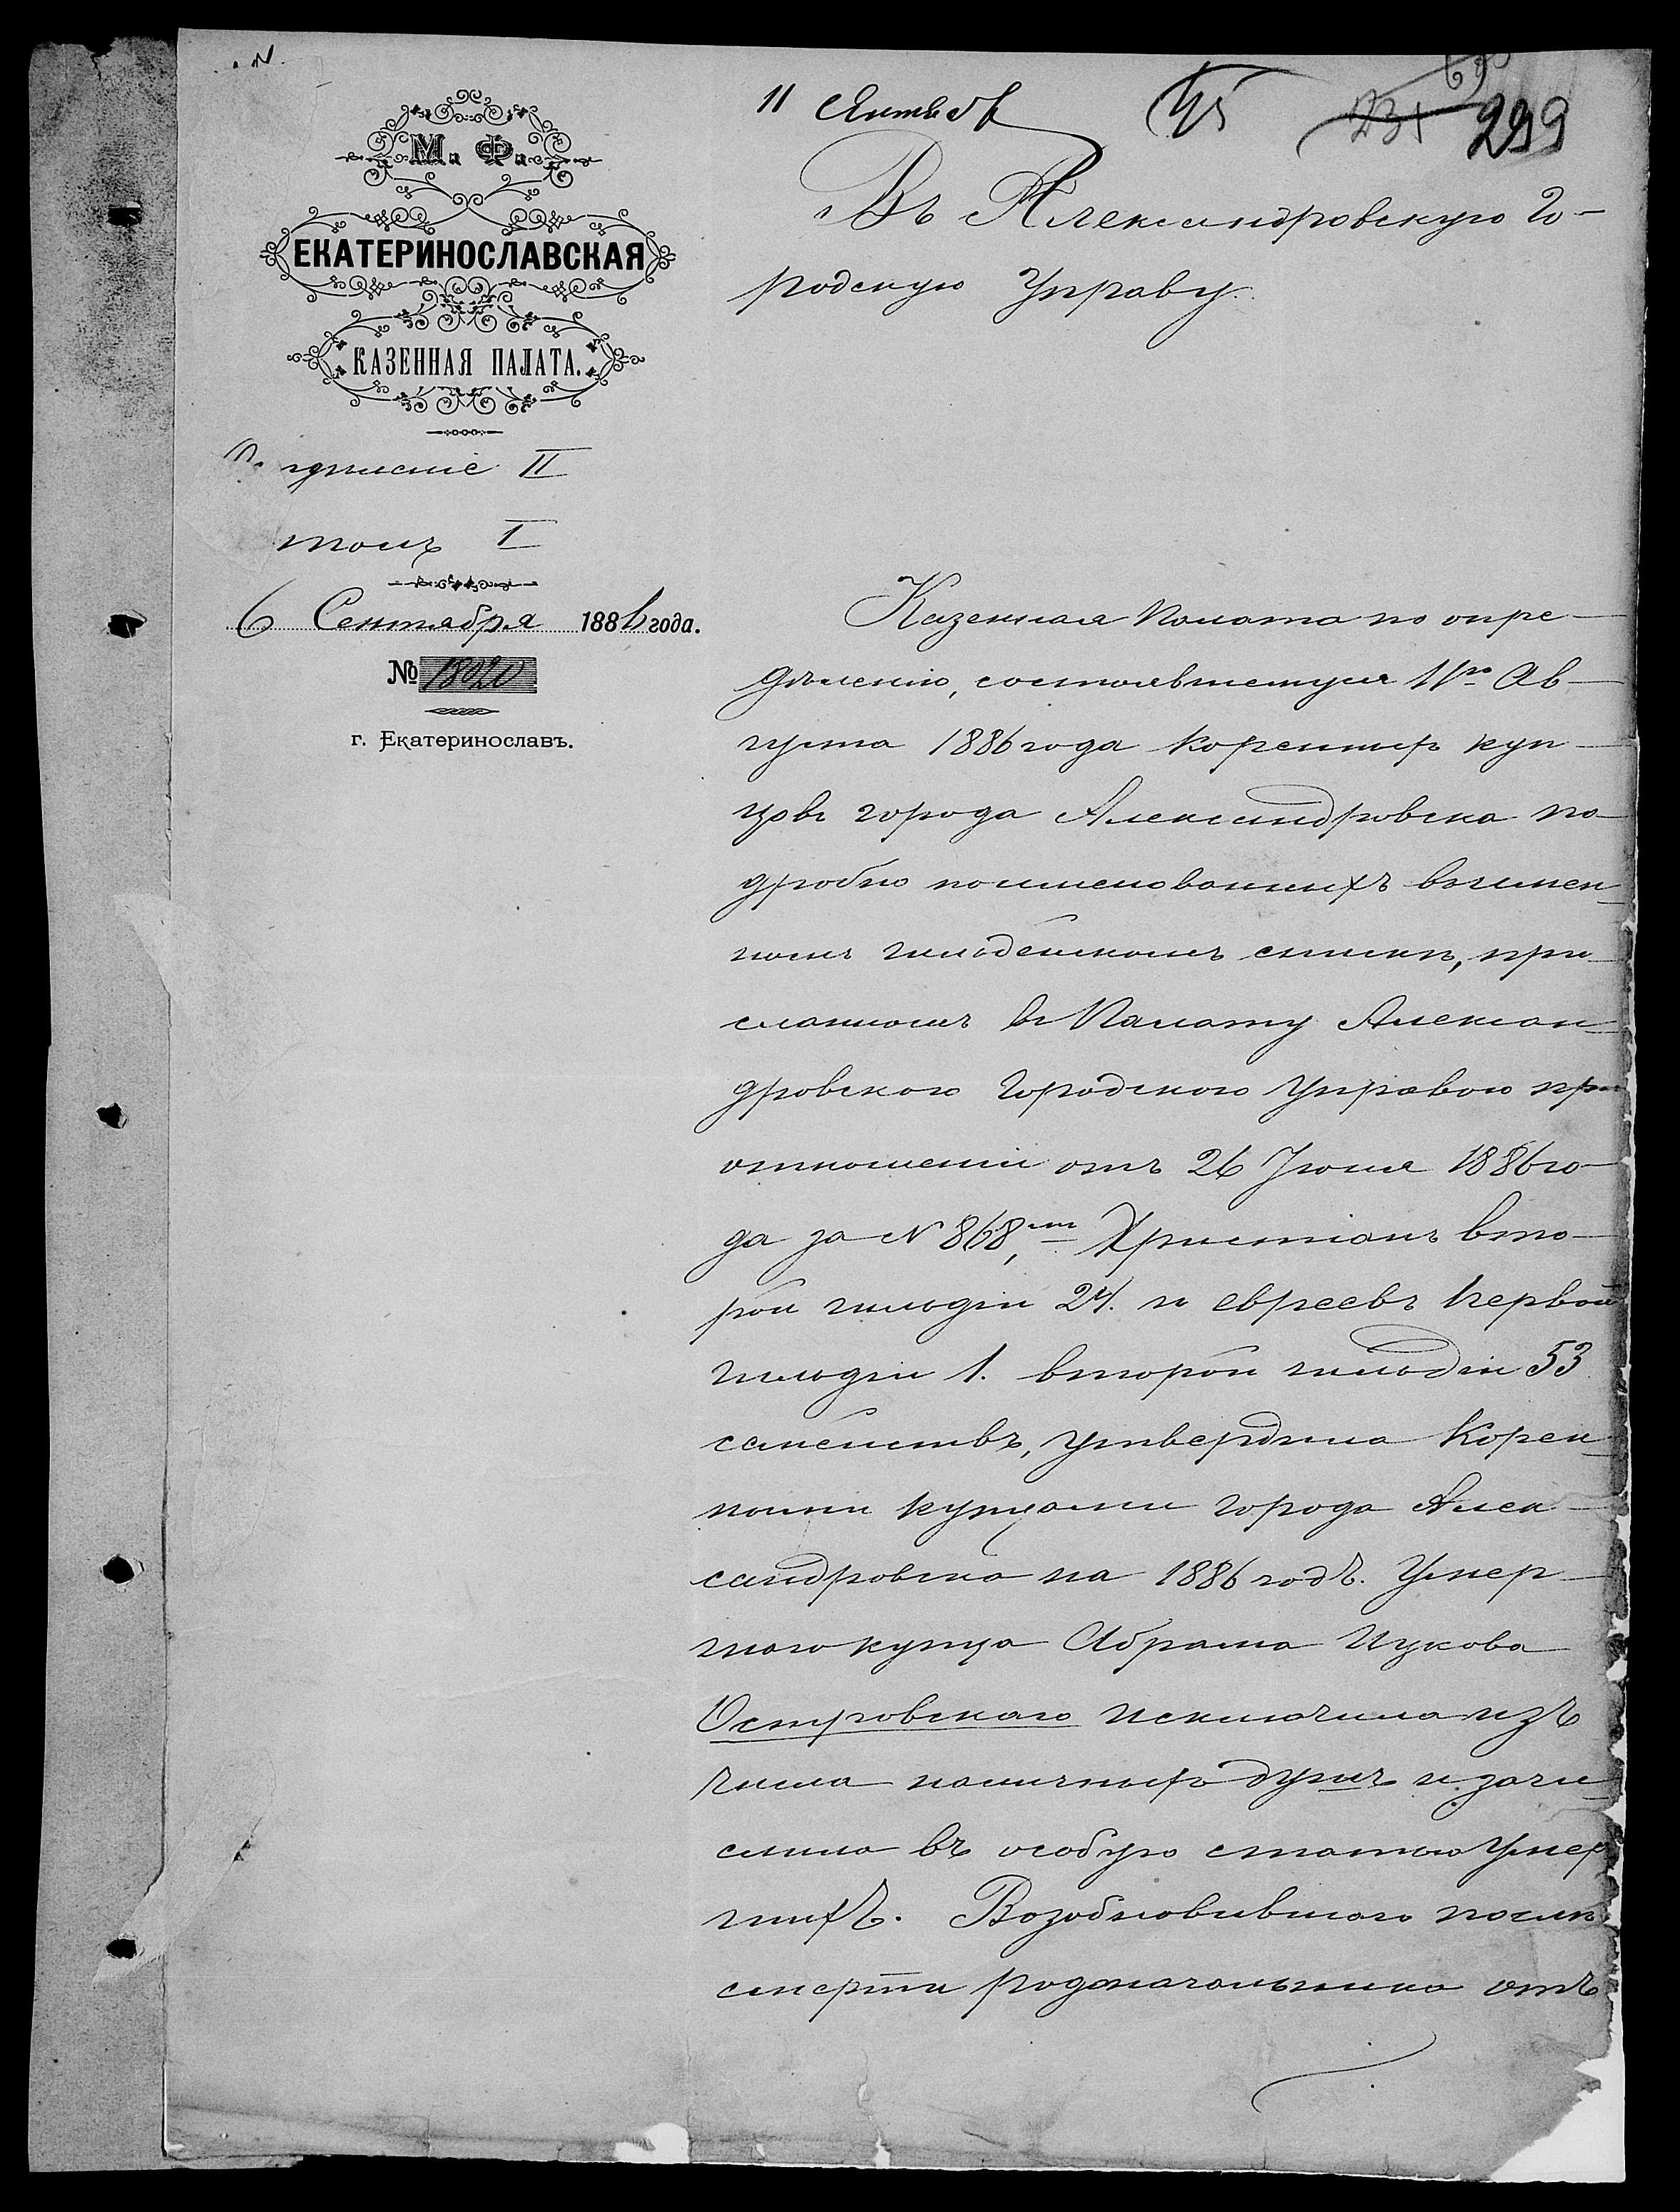 11 Сентяб
299
М. Ф.
ЕКАТЕРИНОСЛАВСКАЯ
КАЗЕННАЯ ПАЛАТА.
II
столъ I
6 Сентября 1886 года.
№ 18020
г. Екатеринославъ.
Въ Александровскую Го-
родскую Управу.
Казенная Палата по опре-
дѣленію, состоявшемуся 11го Ав-
густа 1886 года коренныхъ куп-
цовъ города Александровска по-
дробно поименованныхъ въ имен-
номъ гильдейскомъ спискѣ, при-
сланномъ въ Палату Алексан-
дровскою Городскою Управою при
отношеніи отъ 26 Іюня 1886 го-
да за № 868, Христіанъ вто-
рой гильдіи 24. и евреевъ первой
гильдіи 1. второй гильдіи 53
семействъ, утвердила Корен-
ными купцами города Алек-
сандровска на 1886 годъ. Умер-
шаго купца Абрама Ицкова
Островскаго исключила изъ
числа наличныхъ душъ и зачи-
слила въ особую статью умер-
шихъ. Возобновившаго послѣ
смерти родоначальника отъ